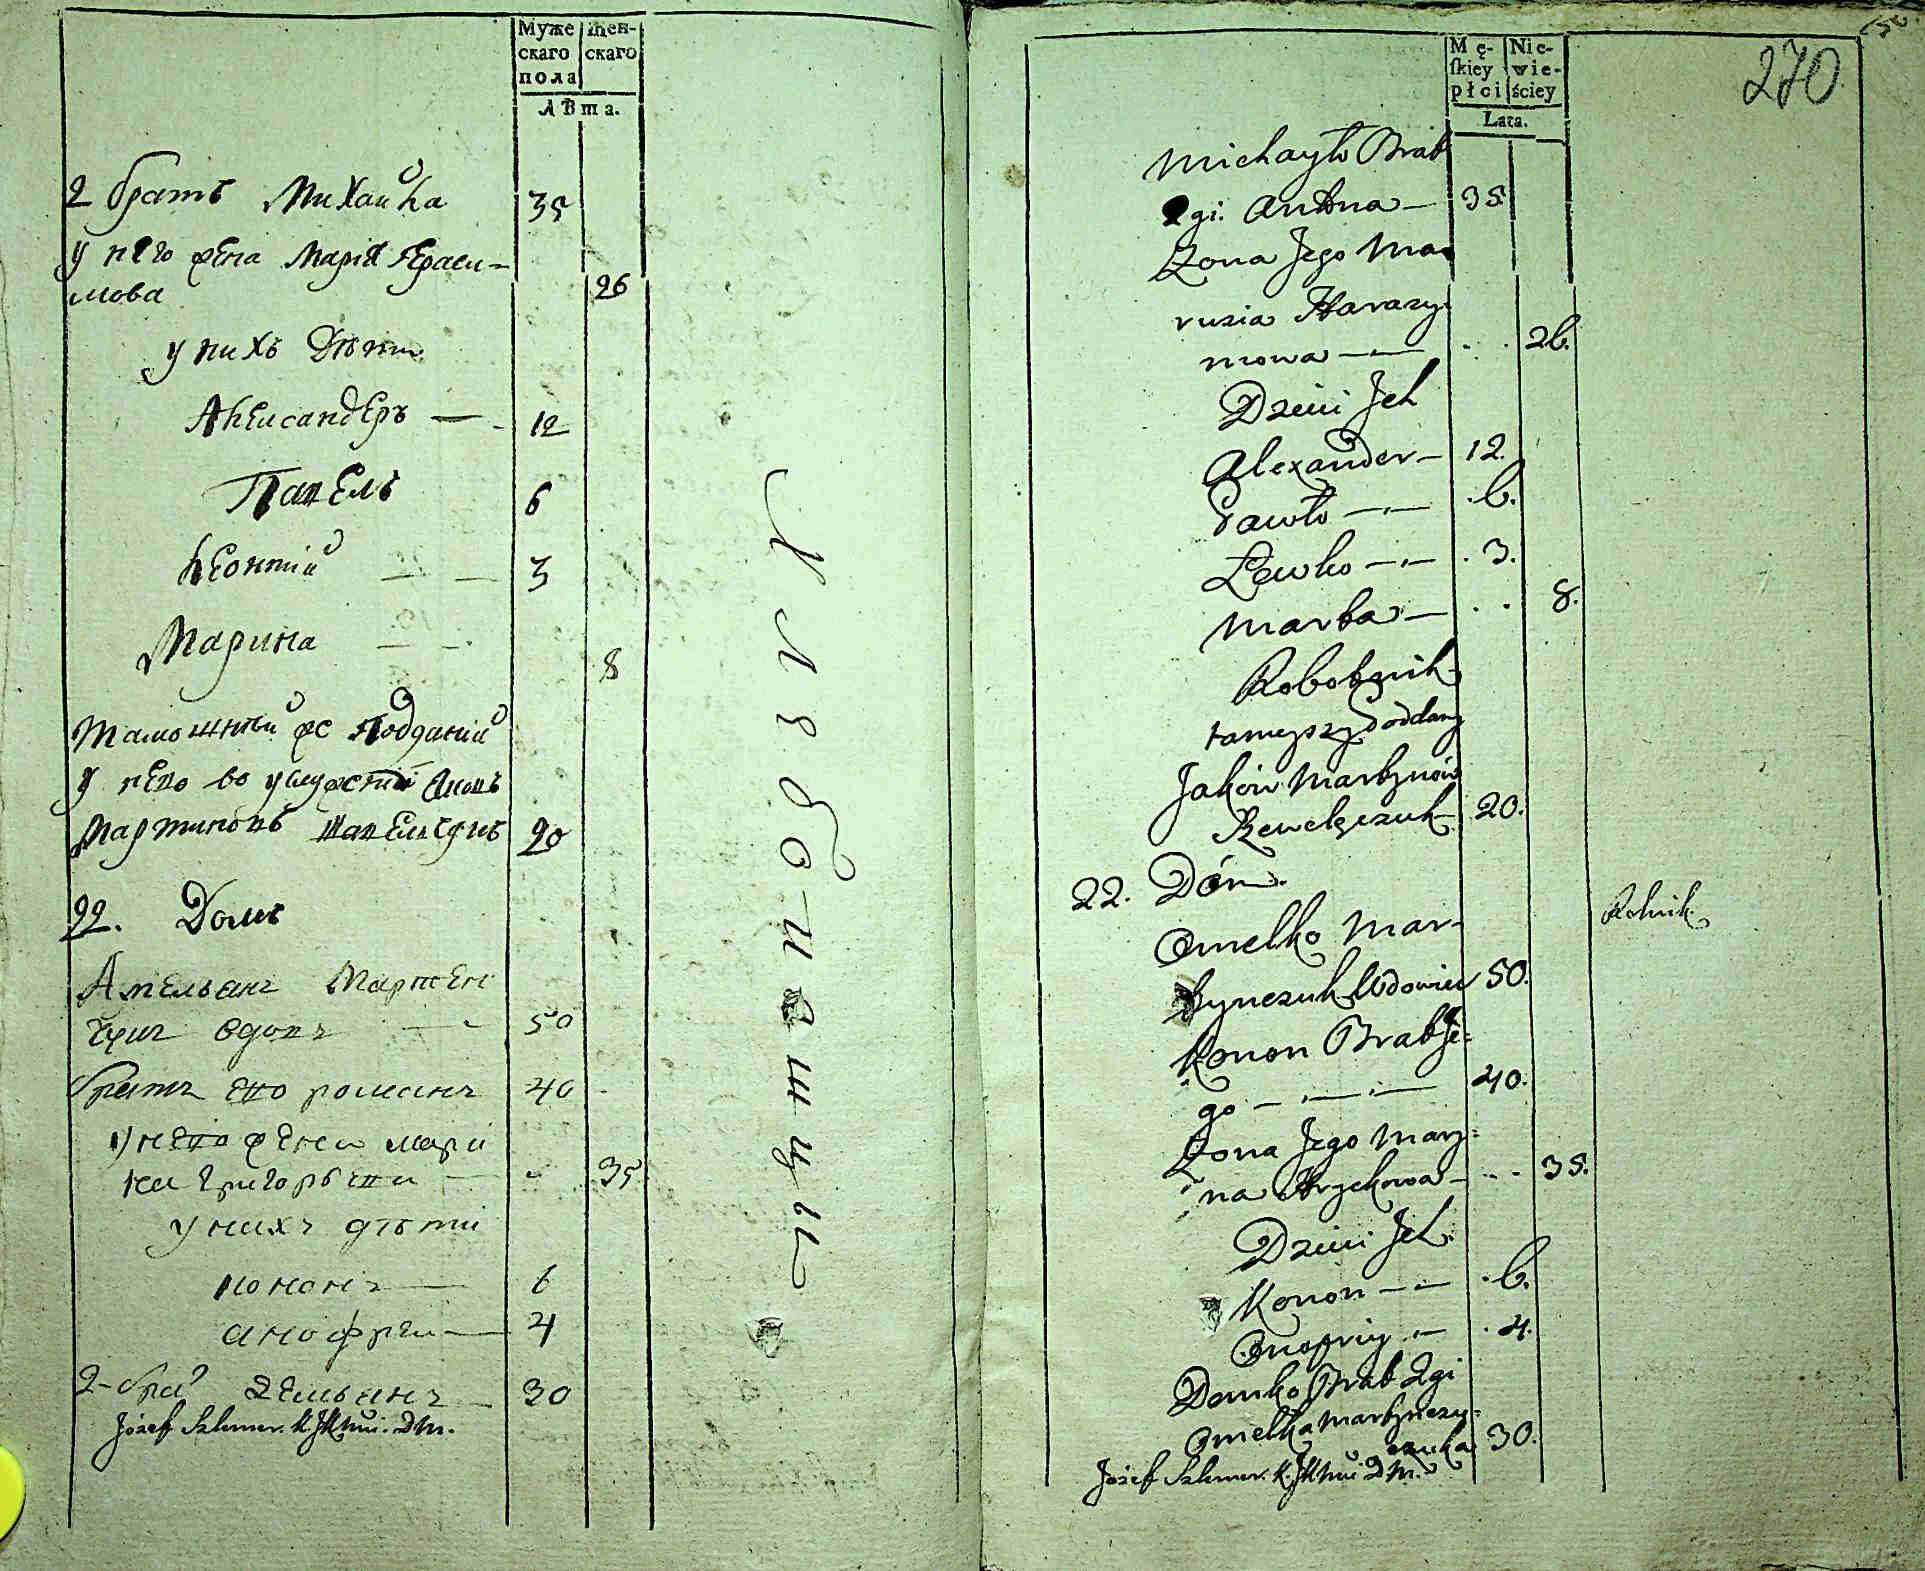 Муже
скаго
пола
Жен-
скаго
Лѣта.
2 братъ Михайла 35
у него жена Марія Гераси-
мова 26
у нихъ Дѣти
Александеръ — 12
Павелъ 6
Леонтій — — 3
Марина — - 8
Таможный же Подданий
у него во услужении Яковъ
Мартиновъ 20
22. Домъ
Амельянъ Мартен
чукъ Вдовъ - - 50
братъ его романъ 40
у него жена мари
на григорьева - 35
у нихъ дѣти
кононъ — 6
анофрей — 4
2-брат Демьянъ 30
Józef Szlemer.
Хлѣбопашцы
Mę-
ſkiey
płci
Nie-
wie-
ściey
Lata.
270
Michayło Brat
2gi. Antona — 35
Żona Jego Ma-
rusia Harasy-
mowa — . . 26.
Dzieci Ich
Alexander — 12.
Pawło — . 6.
Lewko — . 3.
Marta — . . 8.
Robotnik
tameyszy Poddany
Jakow Martynow
20.
22. Dóm.
Rolnik.
Omelko Mar-
tynczuk Wdowiec 50.
Konon Brat Je-
go — 40.
Żona Jego Mary-
na Hryckowa — . . 35.
Dzieci Ich.
Konon — . 6.
Onofriy — . 4.
Demko Brat 2gi
Omelka Martynczu-
czuka 30.
Józef Szlemer.